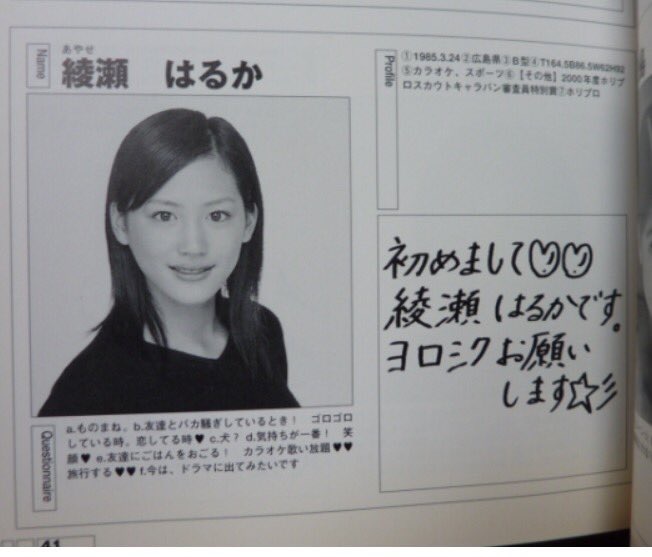 Name
あやせ
綾瀬 はるか
Profile
①1985.3.24②広島県③B型④T164.5B86.5W62H92
⑤カラオケ、スポーツ⑥【その他】2000年度ホリプ
ロスカウトキャラバン審査員特別賞⑦ホリプロ
初めまして♡♡
綾瀬はるかです。
ヨロシクお願い
します☆彡
Questionnaire
a.ものまね。b.友達とバカ騒ぎしているとき! ゴロゴロ
している時。恋してる時♥ c.犬? d.気持ちが一番! 笑
顔♥ e.友達にごはんをおごる! カラオケ歌い放題♥♥
旅行する♥♥ f.今は、ドラマに出てみたいです
41